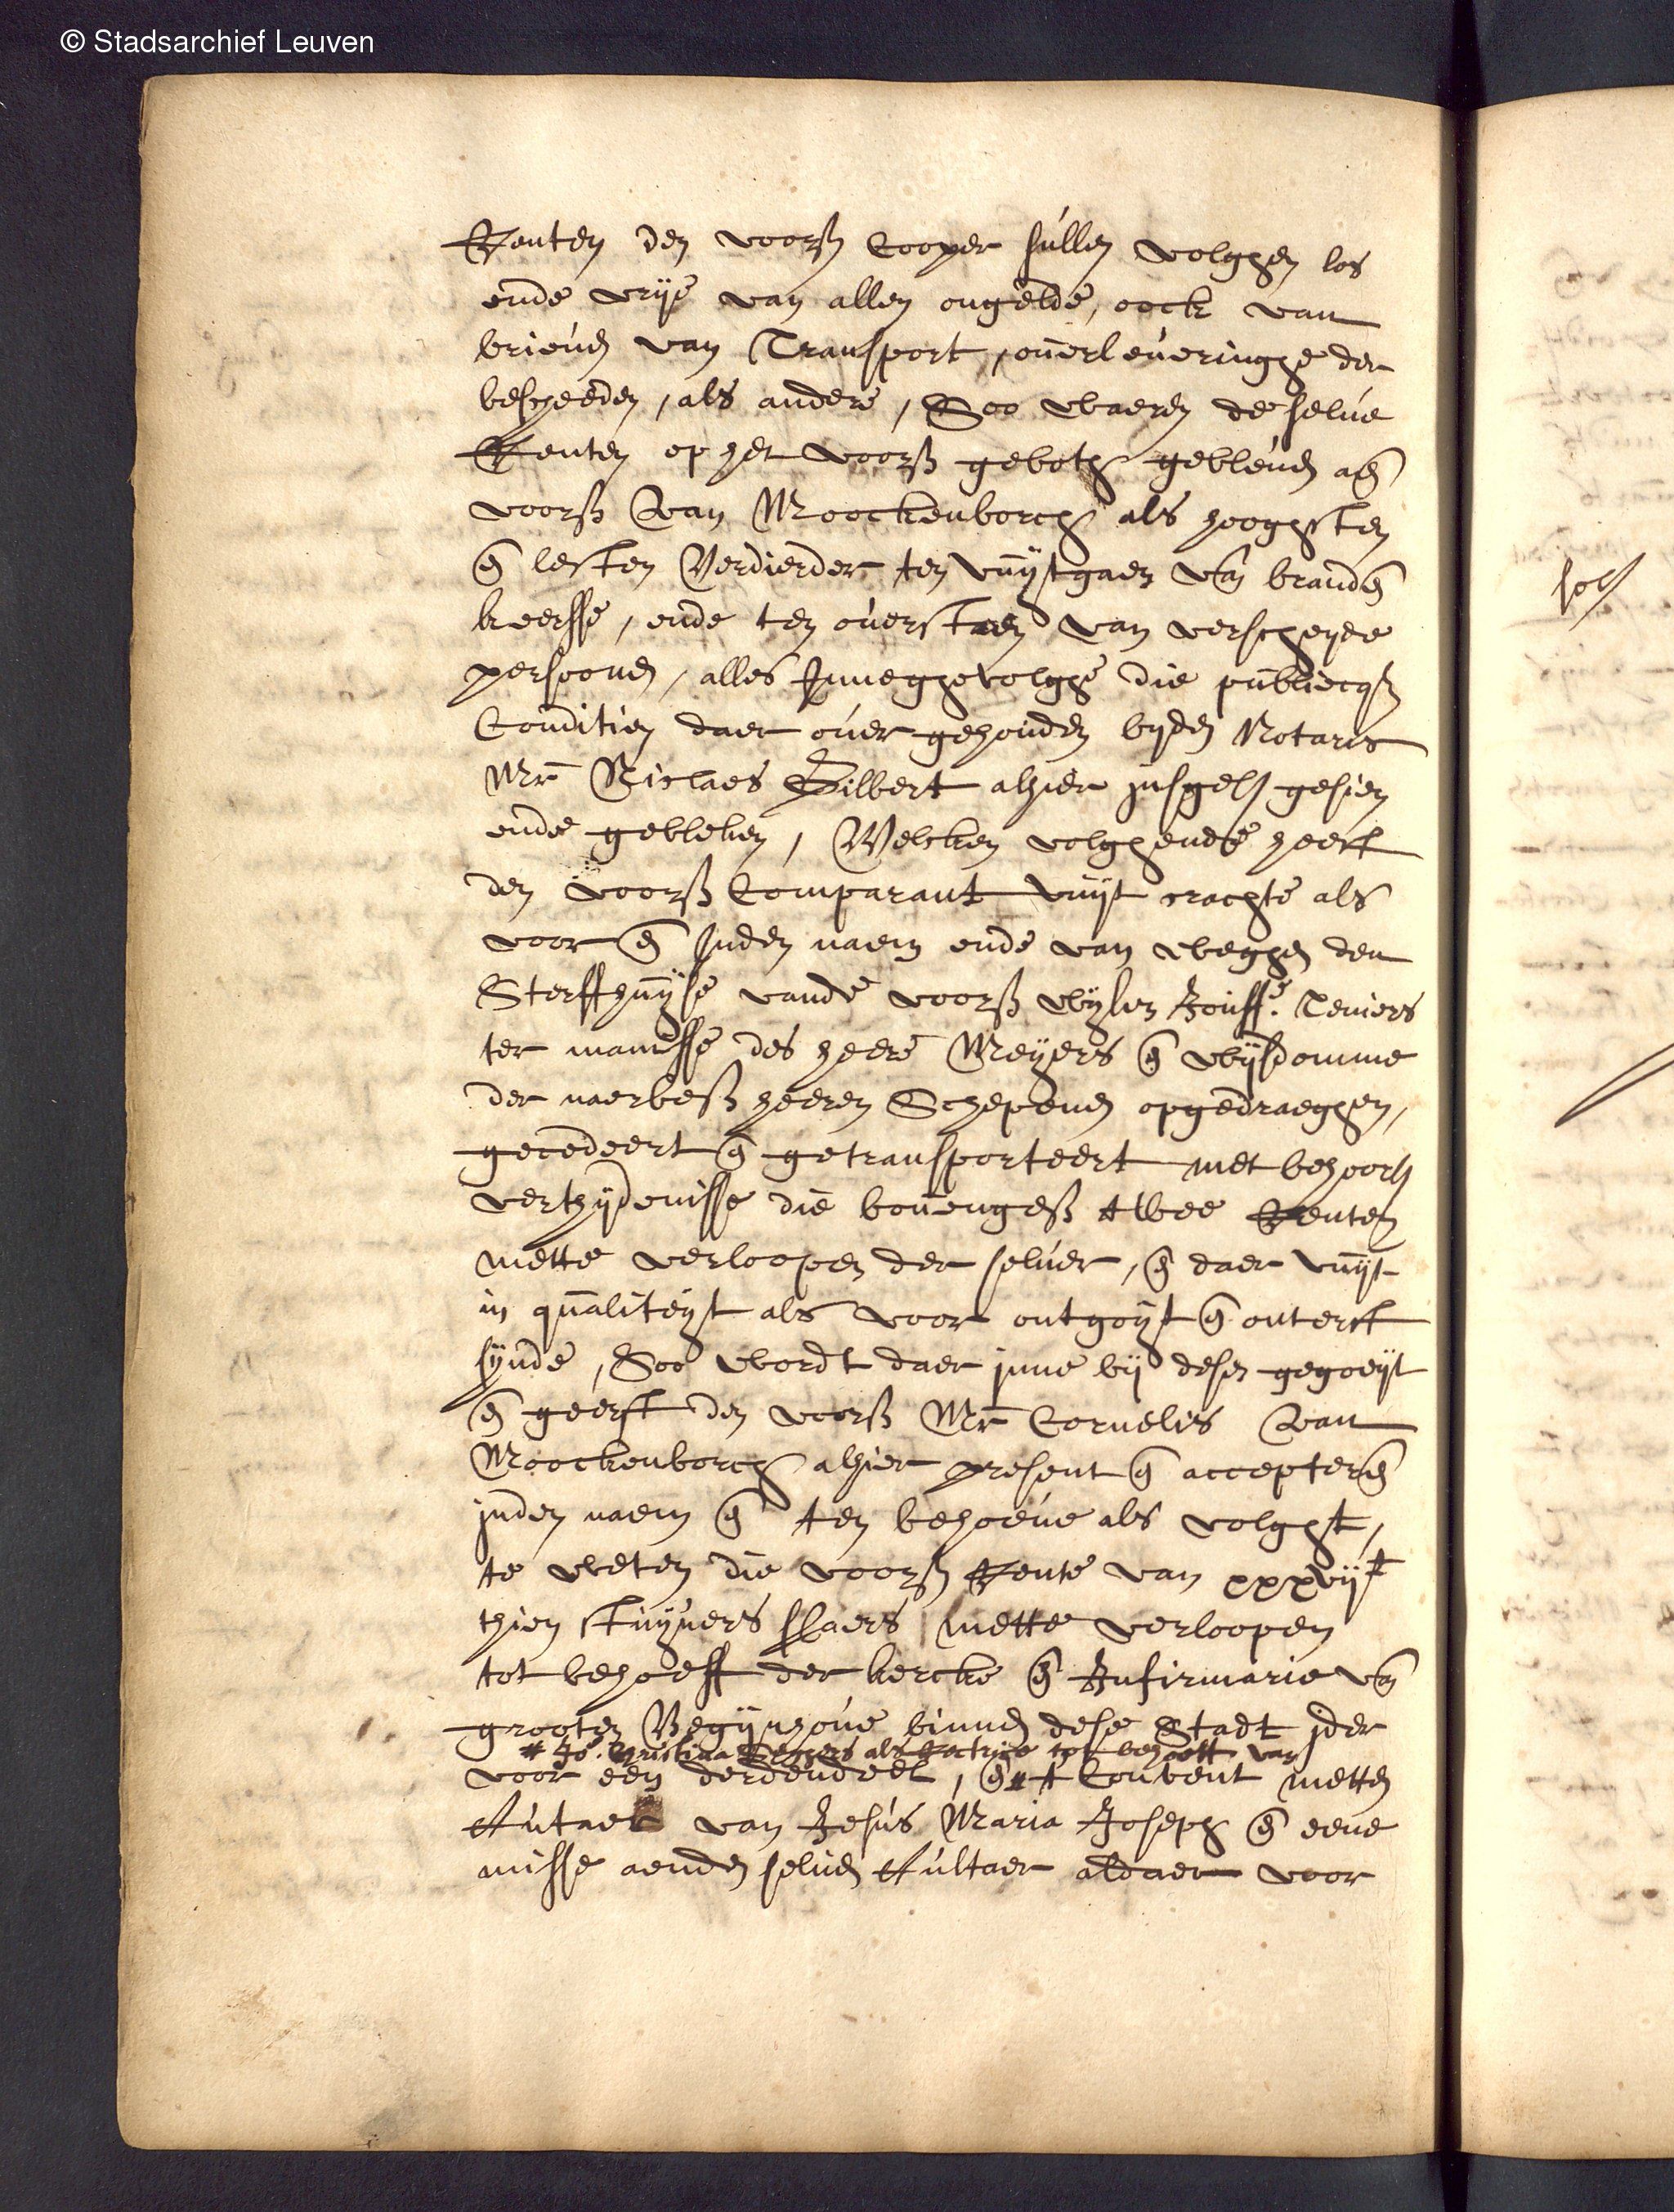 © Stadsarchief Leuven
Renten den voors Cooper sullen volghen los
ende vrije van allen ongelde, oock van
brieuen van Transport, ouerleueringhe der
bescheeden, als andere, Soo waeren de selue
Renten op het voors geboth gebleuen aen
voors Van Moockenborch als hooghsten
en lesten Verdierder ten vuytgaen van branden
keersse, ende ten ouerstaen van verscheyde
persoonen, alles Inneghevolghe die publiecq
Conditien daer ouer gehouden byden Notaris
Mr Niclaes Gilbert alhier gesien
ende gebleken, Welcken volghende heeft
den voors Comparant vuyt crachte als
voor en Inden naem ende van weghen den
Sterffhuyse vande voors wylen Jouffe. Teniers
ter manisse des heere Meyers en wysdomme
der naerbes heeren Schepenen opgedraeghen,
gecedeert en getransporteert met behoorl
verthydenisse die bouenges twee Renten
mette verloopen der seluer, en daer vuyt
in qualiteyt als voor ontgoyt en onterft
synde, Soo wordt daer inne by desen gegoeyt
en geerft den voors Mr Cornelis Van
Moockenborch alhier present en accepteren
inden naem en ten behoeue als volght,
te weten die voors Rente van xxxvij
thien stuyvers siaers mette verloopen
tot behoeff der kercke en Infirmarie van
grooten Begijnhoue binnen dese Stadt ider
# Jo. Christina als Rectrice tot behoeff van
voor een derdendeel, en # t Convent metten
Autaer van Jesus Maria Joseph en eene
misse aenden seluen Aultaer aldaer voor
sol